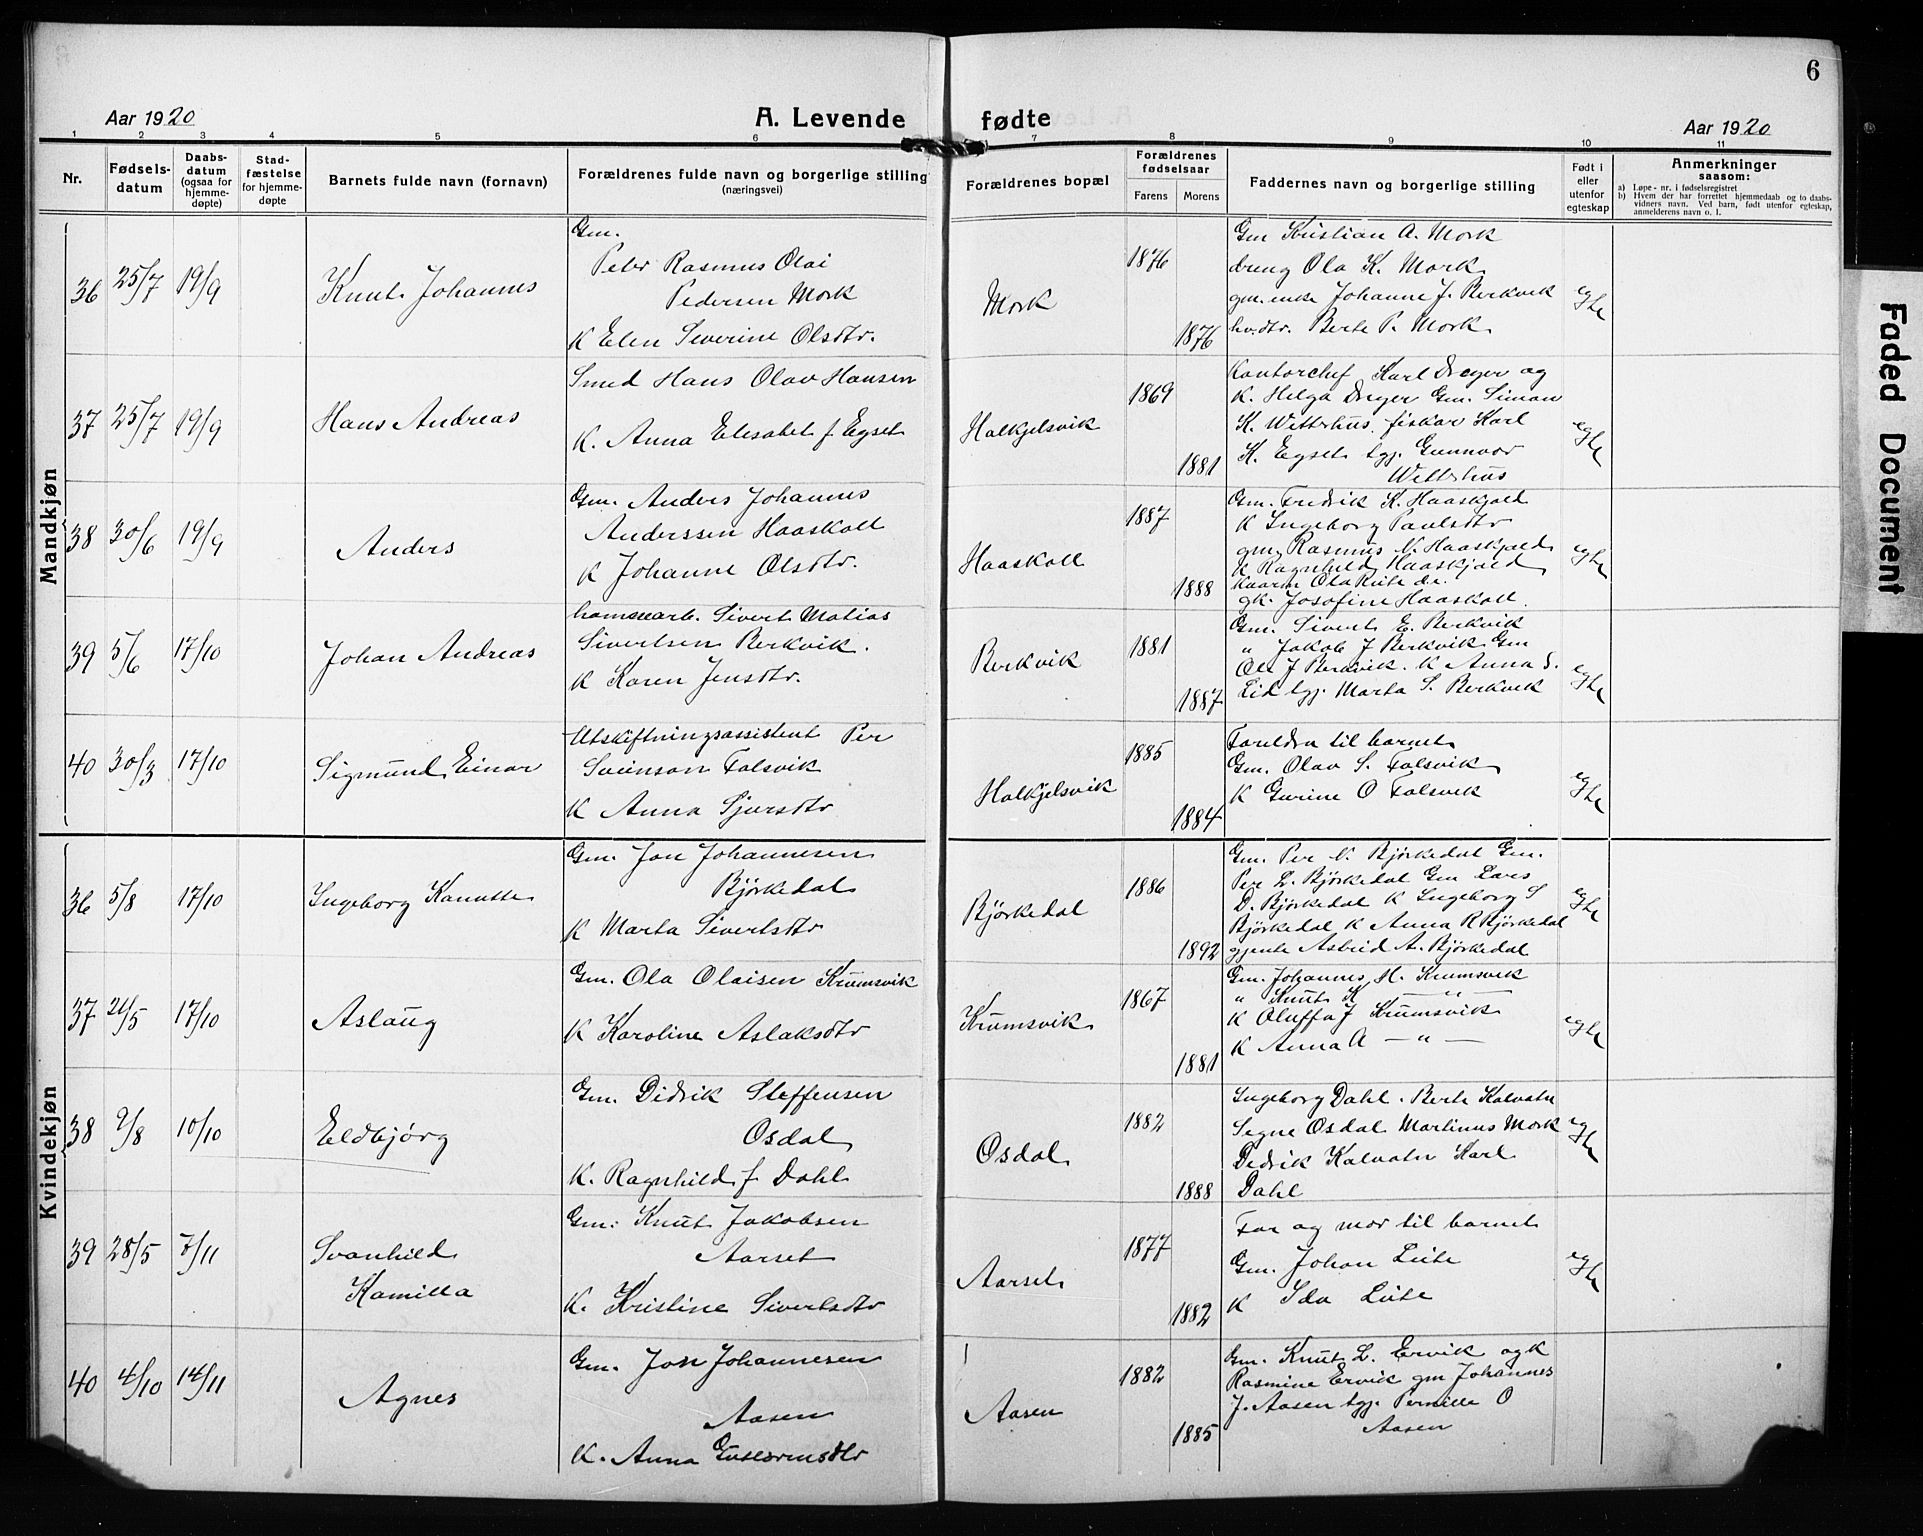 6
Aar 1920 A. Levende fødte Aar 1920
1 2 3 4 5 6 7 8 9 10 11
Nr. Fødselsdatum Daabsdatum (ogsaa for hjemmedøpte) Stadfæstelse for hjemmedøpte Barnets fulde navn (fornavn) Forældrenes fulde navn og borgerlige stilling (næringsvei) Forældrenes bopæl Forældrenes fødselsaar Farens Morens Faddernes navn og borgerlige stilling Født i eller utenfor egteskap Anmerkninger saasom:
a) Løpe-nr. i fødselsregistret
b) Hvem der har forrettet hjemmedaab og to daabsvidners navn. Ved barn, født utenfor egteskap, anmelderens navn o. l.
Mandkjøn
36 25/7 19/9 Knut Johannes
Gm.
Peter Rasmus Olai
Pedersen Mork
K Elen Severine Olsdtr.
Mork 1876 1876
Gm Kristian A. Mork
dreng Ola K. Mork
gm. enke Johanne J. Berkvik
hv.dtr. Berte P. Mork
egte
37 25/7 19/9 Hans Andreas
Smed Hans Olav Hansen
K. Anna Elesabet f Egset
Halkjelsvik 1869 1881
Kontorchef Karl Dreyer og
K. Helga Dreyer Gm. Simon
K. Wetterhus. fiskar Karl
K. Egset tgj. Gunnvor
Wetterhus
egte
38 30/6 19/9 Anders
Gm. Anders Johannes
Anderssen Haaskoll
K Johanne Olsdtr.
Haaskoll 1887 1888
Gm. Fredrik K. Haaskjold
K Ingeborg Paulsdtr
gm. Rasmus N. Haaskjold
K Ragnhild Haaskjold
Ola
gk. Josofine Haaskoll.
egte
39 5/6 17/10 Johan Andreas
Sivert Matias
Sivertsen Berkvik.
K Karen Jensdtr.
Berkvik 1881 1887
Gm. Sivert E. Berkvik
" Jakob J Berkvik Gm
Ole J Berkvik. K Anna S.
Lid tgj. Marta S. Berkvik
egte
40 30/3 17/10 Sigmund Einar
Utskiftningsassistent Per
Sveinson Folsvik
K Anna Sjursdtr
Halkjelsvik 1885 1884
Foreldra til barnet
Gm. Olav S. Folsvik
K Gurine O Folsvik
egte
Kvindekjøn
36 5/8 17/10 Ingeborg Kanutte
Gm. Jon Johannesen
Bjørkedal
K Marta Sivertsdtr
Bjørkedal 1886 1892
Gm. Per N. Bjørkedal Gm.
Per L. Bjørkedal Gm Lars
D. Bjørkedal K Ingeborg S
Bjørkedal K Anna R Bjørkedal
gjente Astrid A. Bjørkedal
egte
37 21/5 17/10 Aslaug
Gm. Ola Olaisen Krumsvik
K Karoline Aslaksdtr
Krumsvik 1867 1881
Gm. Johannes M. Krumsvik
" Knut K — " —
K Oluffa J Krumsvik
K Anna A — " —
egte
38 9/8 10/10 Eldbjørg
Gm. Didrik Steffensen
Osdal
K. Ragnhild f Dahl
Osdal 1882 1888
Ingeborg Dahl. Berte Kalvatn
Segne Osdal Martinus Mork
Dedrik Kalvatn Karl
Dahl
egte
39 28/5 7/11 Svanhild
Kamilla
Gm: Knut Jakobsen
Aarset
K. Kristine Sivertsdtr
Aarset 1877 1882
Far og mor til barnet
Gm. Johan Leite
K Ida Leite
egte
40 4/10 14/11 Agnes
Gm. Jon Johannesen
Aasen
K. Anna Guttormsdtr
Aasen 1882 1885
Gm. Knut L. Ervik og K
Rasmine Ervik gm Johannes
J. Aasen tgj. Pernille O
Aasen
Faded Document